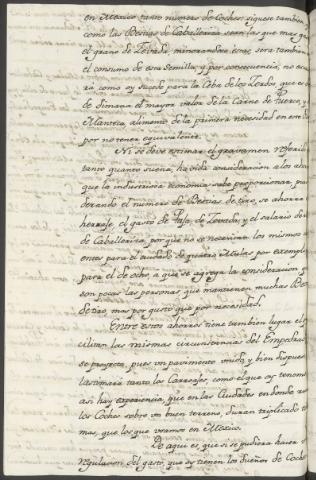 en Mexico tanto numero de Coches: siguese tambien
como las Bestias de Caballeriza seran las que mas
el grano de Zebada, minorandose estas, sera tambien
el consumo de esta Semilla, y por consecuencia, no
ra como oy sucede para la Ceba de los Zerdos, que es
de dimana el mayor valor de la Carne de Puerco, y
Manteca, alimento de la primera necesidad en este
por no tener equivalente.
Ni se deve estimar el gravamen
tanto quanto suena, havida consideracion a los
que la industriosa economia sabe proporcionar,
derando el numero de Bestias de tiro, se ahorra
herraje, el gasto de Paja, de Zevada, y el salario de
de Caballeriza, por que no se necesitan los mismos
entes para el cuidado de quatro Mulas por exemplo
para el de ocho, a que se agrega la consideracion
son pocas las personas que mantienen muchas
de tiro, mas por gusto que por necesidad.
Entre estos ahorros tiene tambien lugar el
cilitan las mismas circunstancias del Empedrado
se proyecta, pues un pavimento unido, y bien dispuesto
lastimara tanto los Carruajes, como el que oy tenemos
asi hay experiencia, que en las Ciudades en donde
los Coches sobre un buen terreno, duran triplicado
mas, que los que usamos en Mexico.
De aqui es, que si se pudiera hacer
regulacion del gasto, que oy tienen los dueños de Coches